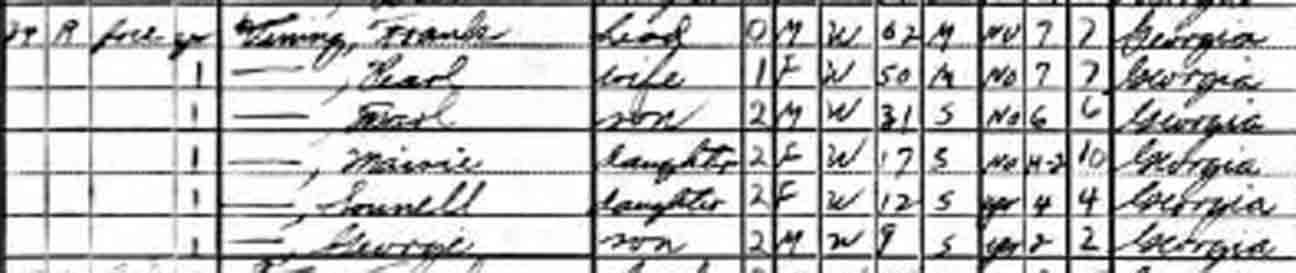 R free Frank head 0 M W 62 M No 7 7 Georgia
1 — , Pearl wife 1 F W 50 M No 7 7 Georgia
1 — son 2 M W 31 S No 6 6 Georgia
1 — , Maisie daughter 2 F W 17 S No H-2 10 Georgia
1 — , Lounell daughter 2 F W 12 S yes 4 4 Georgia
1 — , George son 2 M W 9 S yes 2 2 Georgia